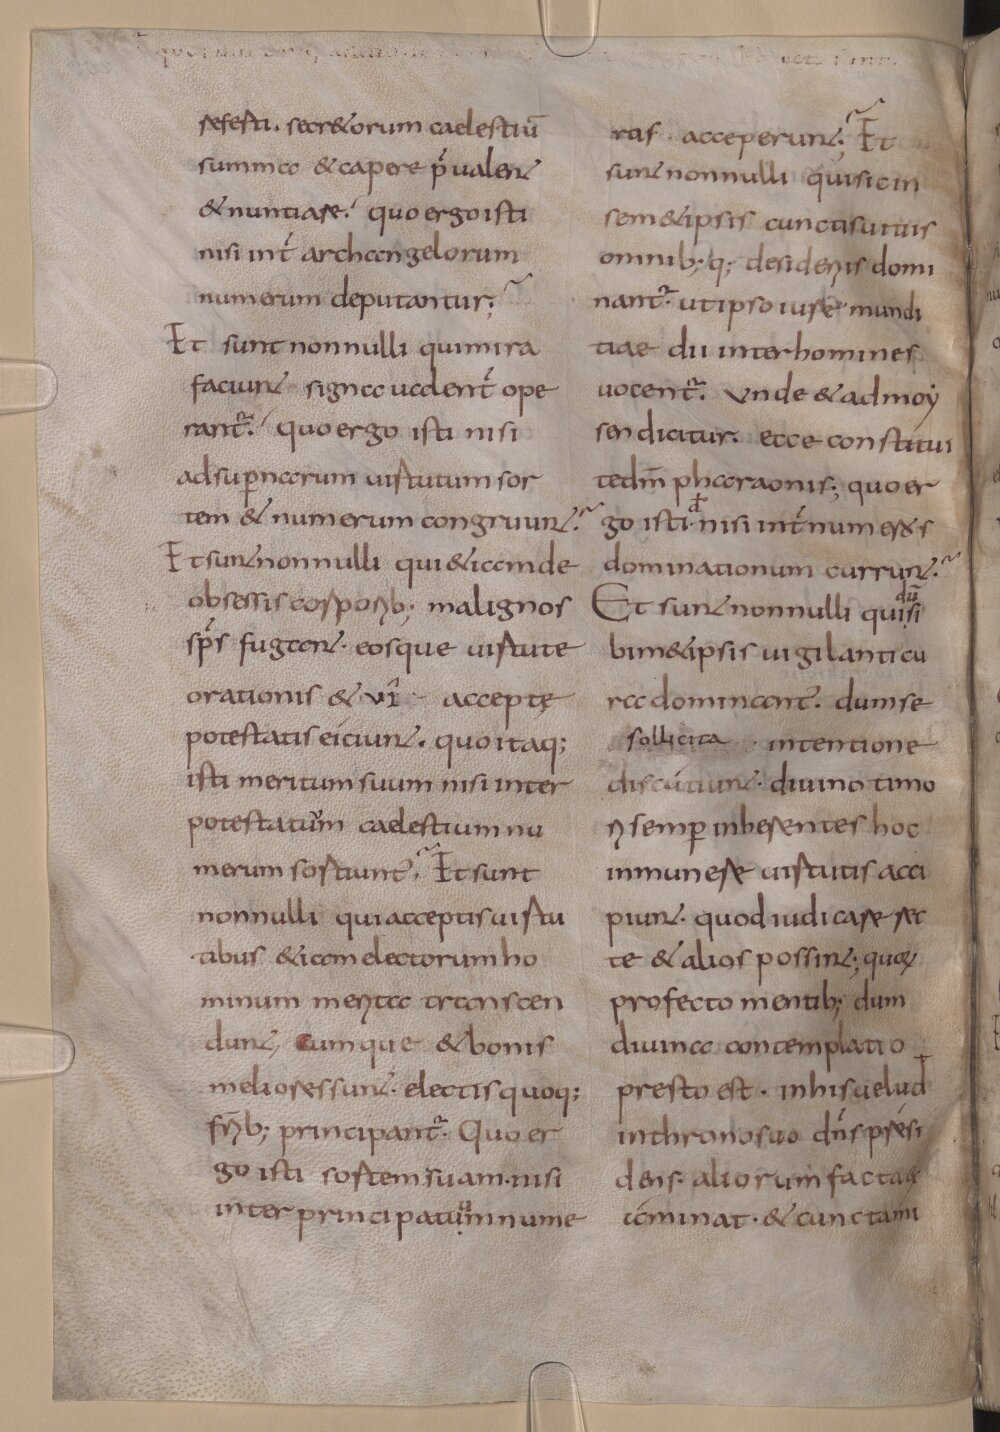 refecti. secr&orum caelestiū
summa & capere p̄ualent
& nuntiare. quo ergo isti
nisi int̄ archangelorum
numerum deputantur;
Et sunt nonnulli qui mira
faciunt signa ualent̄ ope
rant᷑. quo ergo isti nisi
ad sup̄narum uirtutum sor
tem & numerum congruunt.
Et sunt nonnulli qui &iam de
obsessis corporib; malignos
sp̄s fugant. eosque uirtute
orationis & ui acceptę
potestatis eiciunt. quo itaq;
isti meritum suum nisi inter
potestatum caelestium nu
merum sortiunt᷑. Et sunt
nonnulli qui acceptis uirtu
tibus &iam electorum ho
minum merita transcen
dunt, Cumque & bonis
meliores sunt. electis quoq;
fr̄ib; principant᷑. Quo er
go isti sortem suam. nisi
inter principatuum nume
ras acceperunt; Et
sunt nonnulli qui sic in
sem&ipsis cunctis uitiis
omnib; q; desideriis domi
nant᷑. ut ipso iure mundi
tiae dii inter homines
uocent᷑. Vnde & ad moy
sen dicitur. ecce constitui
te dm̄ pharaonis; quo er
go isti nisi int̄ numeros
dominationum currunt.
Et sunt nonnulli qui dū si
bim&ipsis uigilanti cu
ra dominant᷑. dum se
sollicita intentione
discutiunt. diuino timo
ri semper inherentes hoc
in munere uirtutis acci
piunt. quod iudicare rec
te & alios possint; quorum
profecto mentib; dum
diuina contemplatio
presto est. in his uelud
in throno suo dn̄s p̄resi
dens. aliorum facta ex
aminat. & cuncta mi